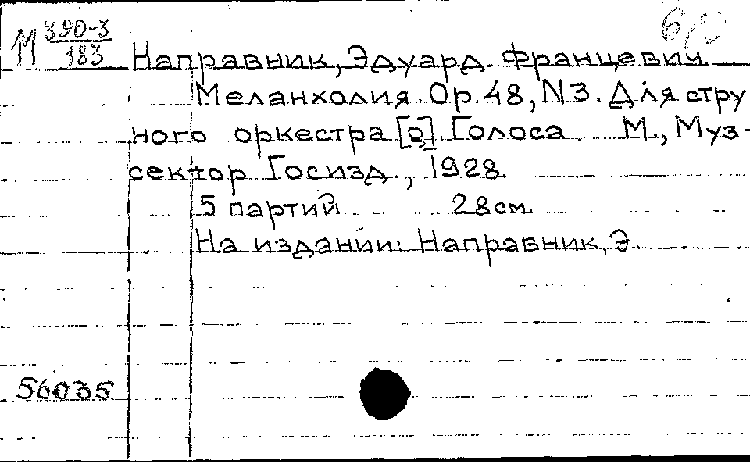 М 390-3
183
Направник, Эдуард Францевич
Меланхолия. Ор. 48, N3. Для стру
ного оркестра Голоса М., Муз-
сектор Госизд, 1928
5 партий 28см.
На издании: Направник, Э.
56035